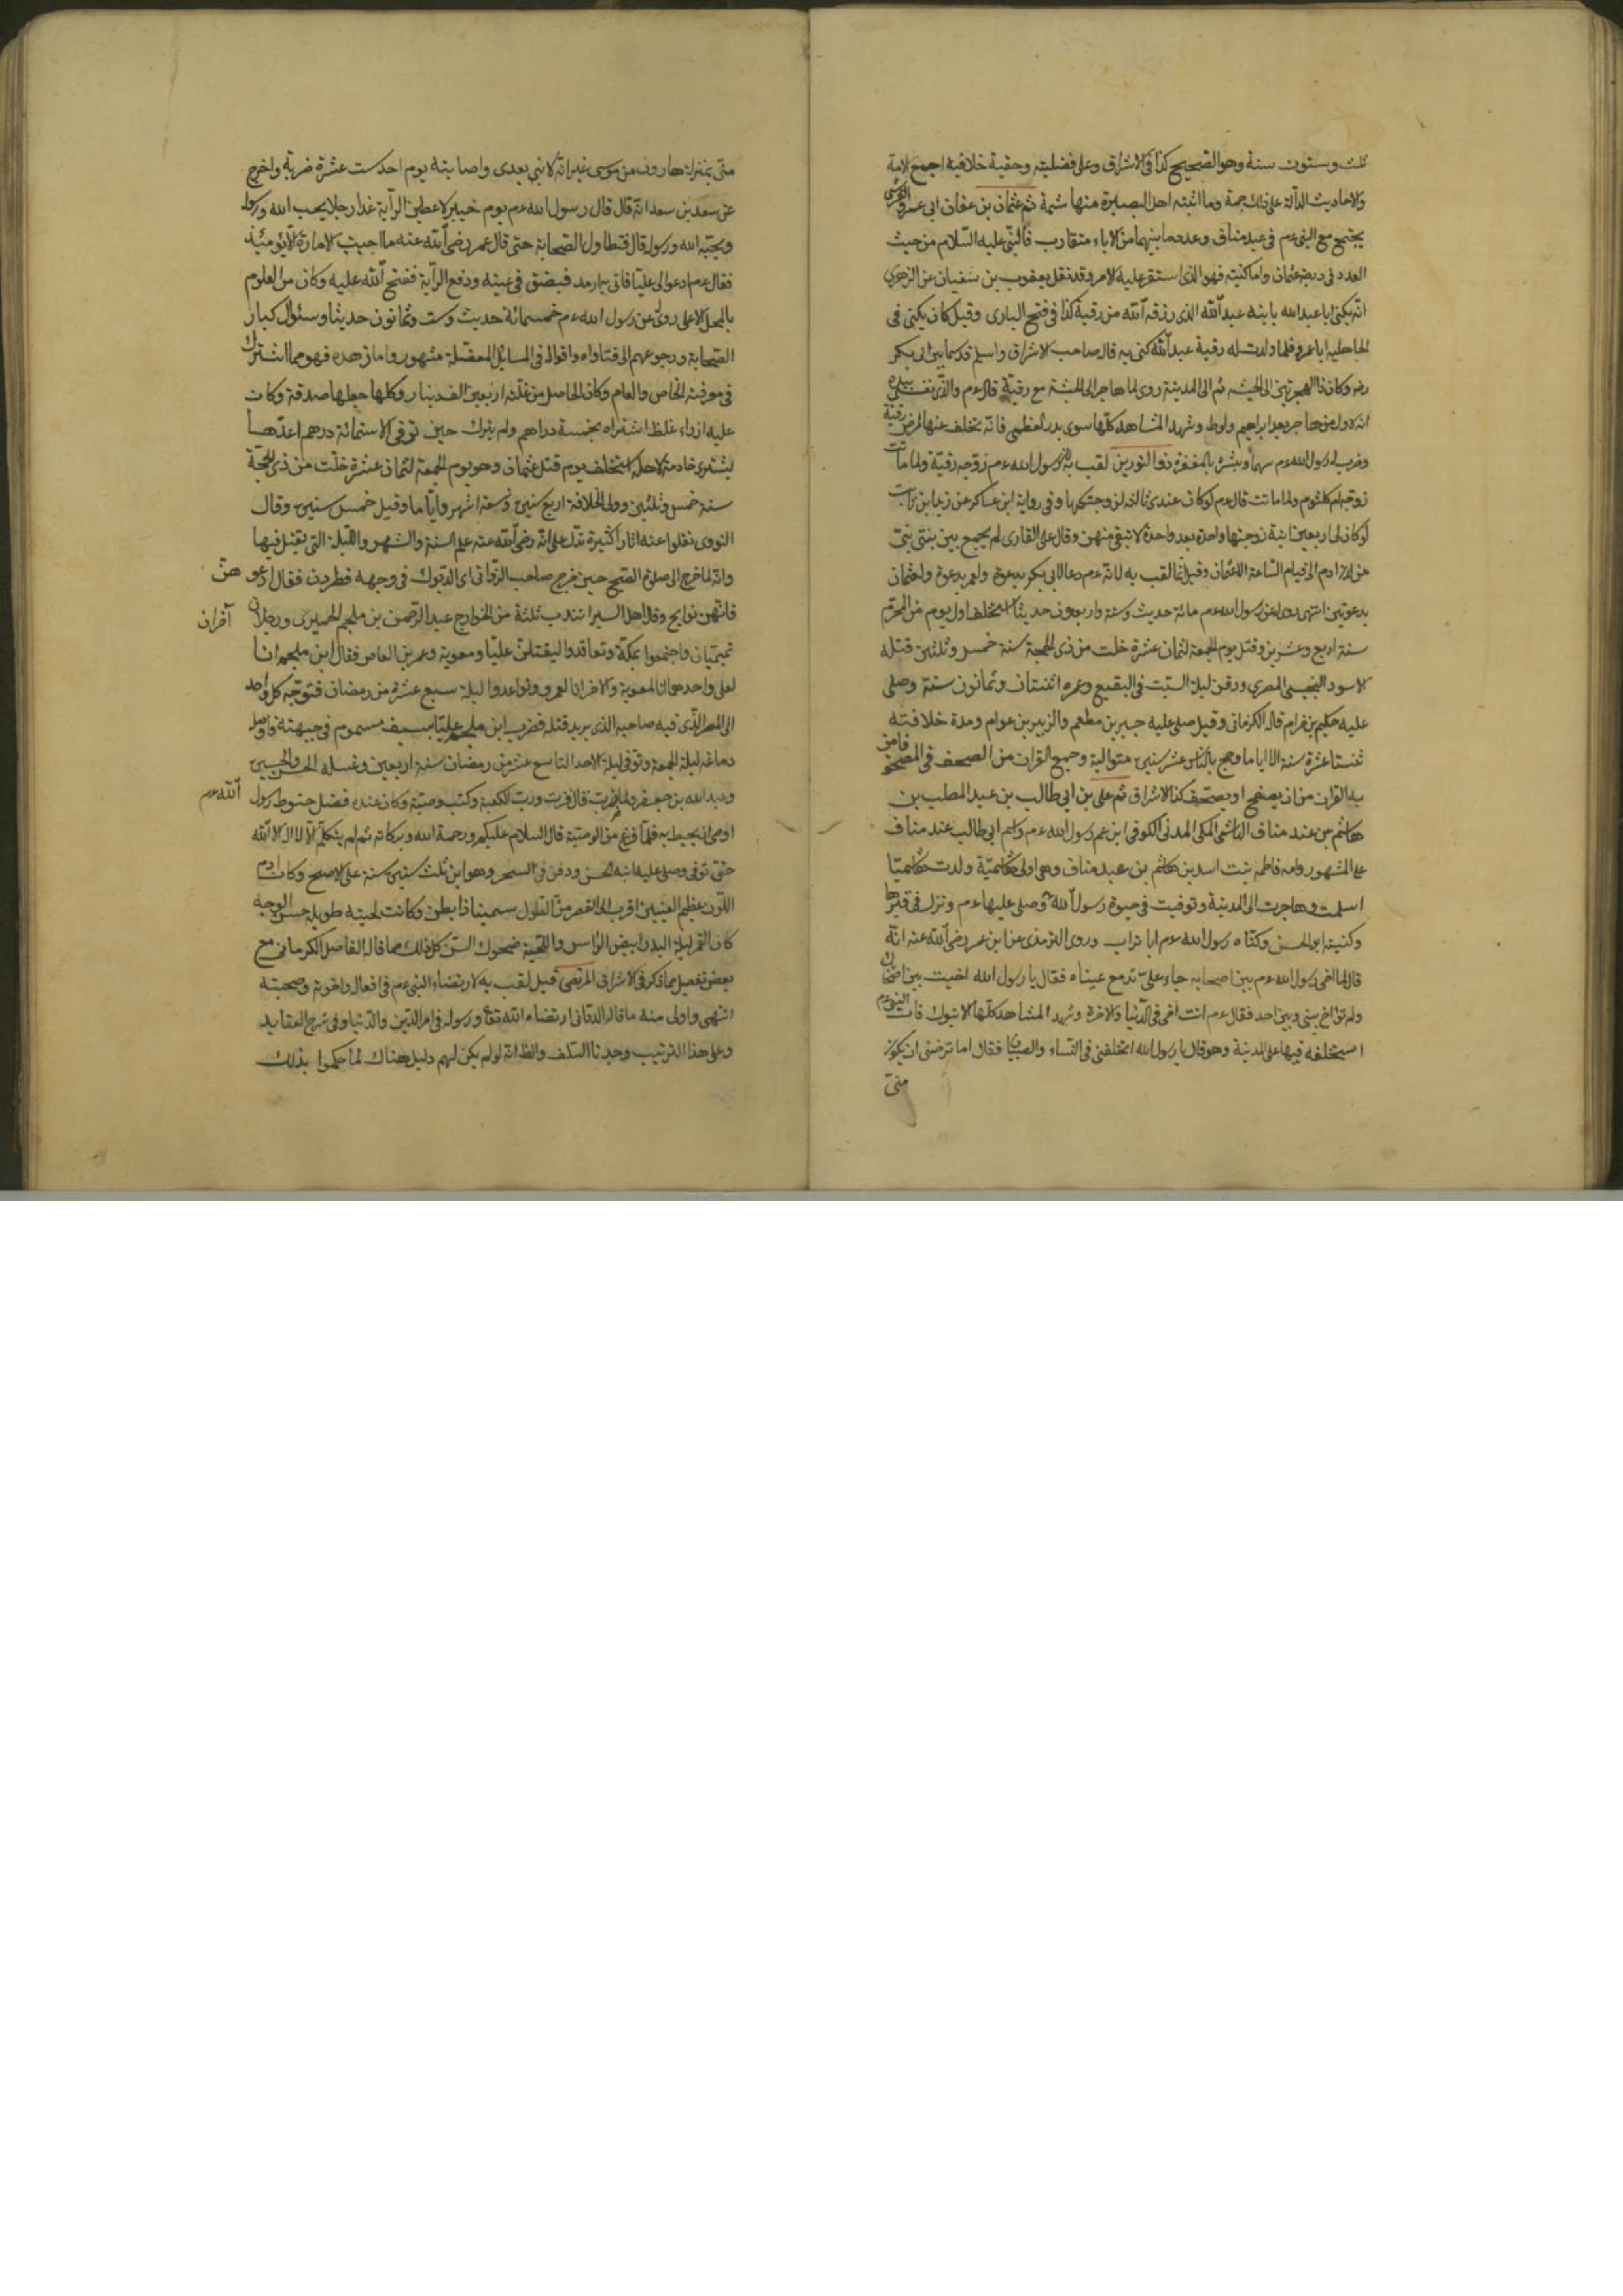 ثلث وستون سنة وهو الصحيح كذا فى الاشراق وعلى فضليته وحقية خلافية اجمع الامة
والاحاديث الدالة على ذلك جمة وما اثبته اهل البصيرة منها شمة ثم عثمان بن عفان ابى عمرو القرشى
يجتمع مع النبى عم فى عبد مناف وعدد ما بينهما من الاباء متقارب فالنبى عليه السلام من حيث
العدد فى درجة عثمان واما كنيته فهو الذى استقر عليه الامر وقد نقل يعقوب بن سفيان عن الزهرى
انه يكنى ابا عبد الله بابنه عبد الله الذى رزقه الله من رقية كذا فى فتح البارى وقيل كان يكنى فى
الجاهلية ابا عمرو فلما ولدت له رقية عبد الله كنى به قال صاحب الاشراق واسلم قديما بين ابى بكر
رض وكان ذا الهجرتين الى الحبشة ثم الى المدينة روى لما هاجر الى الحبشة مع رقية قال عم والذى نفسى بيده
انه لاول من هاجر بعد ابراهيم ولوط وشهد المشاهد كلها سوى بدر العظمى فانه تخلف عنها لمرض رقية
وضرب له رسول الله عم سهما وبشره بالمغفرة ذو النورين لقب به لان رسول الله عم زوجه رقية ولما ماتت
زوجه ام كلثوم ولما ماتت قال عم لو كان عندى ثالثة لزوجتكها وفى رواية ابن عساكر عن زيد بن ثابت
لو كان لى اربعين ابنة زوجتها واحدة بعد واحدة لا تبقى منهن وقال على القارى لم يجمع بين بنتى نبى
من لدن ادم الى قيام الساعة الا عثمان وقيل انما لقب به لانه عم دعا لابى بكر بدعوة ولعمر بدعوة ولعثمان
بدعوتين انتهى روى له عن رسول الله عم مائة حديث وستة واربعون حديثا استخلف اول يوم من المحرم
سنة اربع وعشرين وقتل يوم الجمعة لثمان عشرة خلت من ذى الحجة سنة خمس وثلثين قتله
الاسود التجيبى المصرى ودفن ليلة السبت فى البقيع وعمره اثنتان وثمانون سنة وصلى
عليه حكيم بن حزام قاله الكرمانى وقيل صلى عليه جبير بن مطعم والزبير بن عوام ومدة خلافته
ثنتا عشرة سنة الا اياما وحج بالناس عشر سنين متوالية وجمع القران من الصحف فى المصحف فامن
به القران من ان يصفح او يصحف كذا الاشراق ثم على بن ابى طالب بن عبد المطلب بن
هاشم بن عند مناف الهاشمى المكى المدنى الكوفى ابن عم رسول الله عم واسم ابى طالب عند مناف
على المشهور وامه فاطمة بنت اسد بن هاشم بن عبد مناف وهى اولى هاشمية ولدت هاشميا
اسلمت وهاجرت الى المدينة وتوفيت فى حيوة رسول الله وصلى عليها عم ونزل فى قبرها
وكنيته ابو الحسن وكناه رسول الله عم ابا تراب وروى الترمذى عن ابن عمر رضى الله عنه انه
قال لما اخى رسول الله عم بين اصحابه جاء على تدمع عيناه فقال يا رسول الله اخيت بين اصحابك
ولم تؤاخ بينى وبين احد فقال عم انت اخى فى الدنيا والاخرة وشهد المشاهد كلها الا تبوك فان النبى عم
استخلفه فيها على المدينة وهو قال يا رسول الله اتخلفنى فى النساء والصبيان فقال اما ترضى ان يكون
منى
منى بمنزلة هارون من موسى غير انه لا نبى بعدى واصابته يوم احد ست عشرة ضربة واخرج
عن سعد بن سعد انه قال قال رسول الله عم يوم خيبر لاعطين الراية غدا رجلا يحب الله ورسوله
ويحبه الله ورسوله قال فتطاول الصحابة حتى قال عمر رضى الله عنه ما احببت الامارة الا يومئذ
فقال عم ادعوا لى عليا فاتى به ارمد فبصق فى عينه ودفع الراية ففتح الله عليه وكان من العلوم
بالمحل الاعلى روى عن رسول الله عم خمسمائة حديث وست وثمانون حديثا وسئوال كبار
الصحابة ورجوعهم الى فتاواه واقواله فى المسائل المعضلة مشهور واما زهده فهو مما اشترك
فى معرفته الخاص والعام وكان الحاصل من غلته اربعين الف دينار وكلها جعلها صدقة وكان
عليه ازار غلظ اشتراه بخمسة دراهم ولم يترك حين توفى الا ستمائة درهم اعدها
ليشترى خادمة لاهله استخلف يوم قتل عثمان وهو يوم الجمعة لثمان عشرة خلت من ذى الحجة
سنة خمس وثلثين وولى الخلافة اربع سنين وتسعة اشهر واياما وقيل خمس سنين وقال
النووى نقلوا عنه اثارا كثيرة تدل على انه رضى الله عنه علم السنة والشهر والليلة التى يقتل فيها
وانه لما خرج الى صلوة الصبح حين خرج صاحب الزقا اى الديوك فى وجهه فطردن فقال ادعو هن
فانهن نوايح وقال اهل السير انتدب ثلثة من الخوارج عبد الرحمن بن ملجم الحميرى ورجلان آخران
تميميان واجتمعوا بمكة وتعاقدوا ليقتلن عليا ومعوية وعمر بن العاص فقال ابن ملجم انا
لعلى واحدهما انا لمعوية والاخر انا لعمرو وتواعدوا ليلة سبع عشرة من رمضان فتوجه كل واحد
الى المصر الذى فيه صاحبه الذى يريد قتله فضرب ابن ملجم عليا بسيف مسموم فى جبهته فاوصله
دماغه ليلة الجمعة وتوفى ليلة الاحد التاسع عشر من رمضان سنة اربعين وغسله الحسن والحسين
وعبد الله بن جعفر ولما ضرب قال فزت ورب الكعبة وكتب وصيته وكان عنده فضل حنوط رسول الله عم
اوصى ان يحيط به فلما فرغ من الوصية قال السلام عليكم ورحمة الله وبركاته ثم لم يتكلم الا لا اله الا الله
حتى توفى وصلى عليه ابنه الحسن ودفن فى السحر وهو ابن ثلث ستين سنة على الاصح وكان ادم
اللون عظيم العينين اقرب الى القصر من الطول سمينا ذا بطن وكانت لحيته طويلة حسن الوجه
كان القمر ليلة البدر ابيض الرأس واللحية ضحوك السن كل ذلك مما قاله الفاضل الكرمانى مع
بعض تفصيل مما ذكر فى الاشراق المرتضى قيل لقب به لارتضاء النبى عم فى افعاله واخوته وصحبته
انتهى واولى منه ما قاله اللقانى ارتضاه الله تعا ورسوله فى امر الدين والدنيا وفى شرح العقايد
وعلى هذا الترتيب وجدنا السلف والظ انه لو لم يكن لهم دليل هناك لما حكموا بذلك